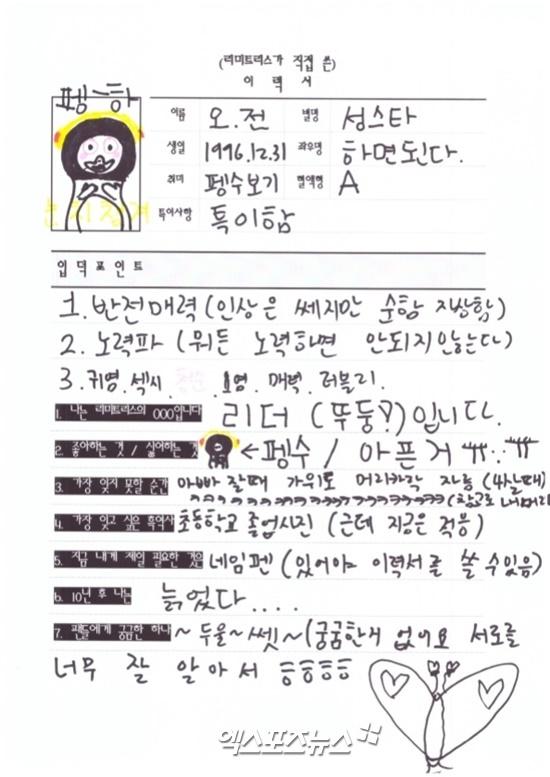 (리미트리스가 직접 쓴)
이 력 서
펭-하
이름 오.전 별명 성스타
생일 1996.12.31 좌우명 하면된다.
취미 펭수보기 혈액형 A
특이사항 특이함
눈치챙겨
입덕포인트
1. 반전매력 (인상은 쎄지만 순함 자상함)
2. 노력파 (뭐든 노력하면 안되지않는다)
3. 귀염, 섹시, 청순, 요염, 매력, 러블리.
1. 나는 리미트리스의 000입니다 리더 (뚜둥?)입니다.
2. 좋아하는 것 / 싫어하는 것 ←펭수 / 아픈거 ㅠㅠ..ㅠㅠ
3. 가장 잊지 못할 순간 아빠 잘때 가위로 머리카락 자름 (4살때)
(참고로 내머리)
4. 가장 잊고 싶은 흑역사 초등학교 졸업사진 (근데 지금은 적응)
5. 지금 내게 제일 필요한 것은 네임펜 (있어야 이력서를 쓸 수있음)
6. 10년 후 나는 늙었다....
7. 팬들에게 궁금한 하나 ~두울~쎗~(궁굼한게 없어요 서로를
너무 잘 알아서 ㅎㅎㅎㅎ
엑스포츠뉴스